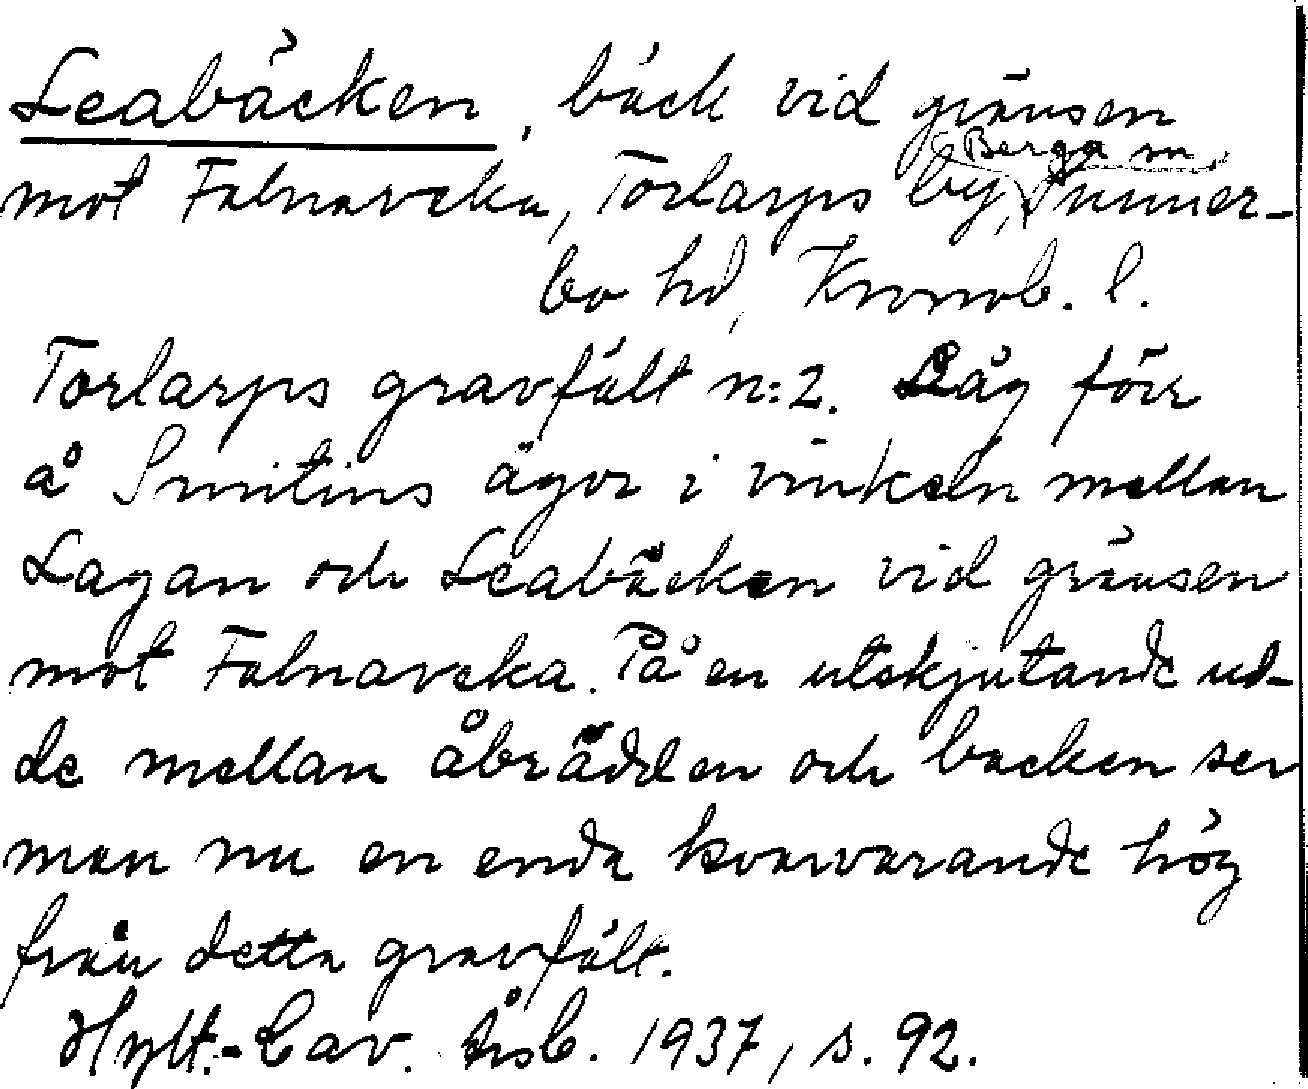 Leabäcken, bäck vid gränsen
mot Falnaveka, Torlarps by, Berga sn, Sunner-
bo hd, Kronob. l.
Torlarps gravfält n:2. Låg förr
å Smitins ägor i vinkeln mellan
Lagan och Leabäcken vid gränsen
mot Falnaveka. På en utskjutande ud-
de mellan åbrädden och backen ser
man nu en enda kvarvarande hög
från detta gravfält.
Hylt.-Cav. Årsb. 1937, s. 92.